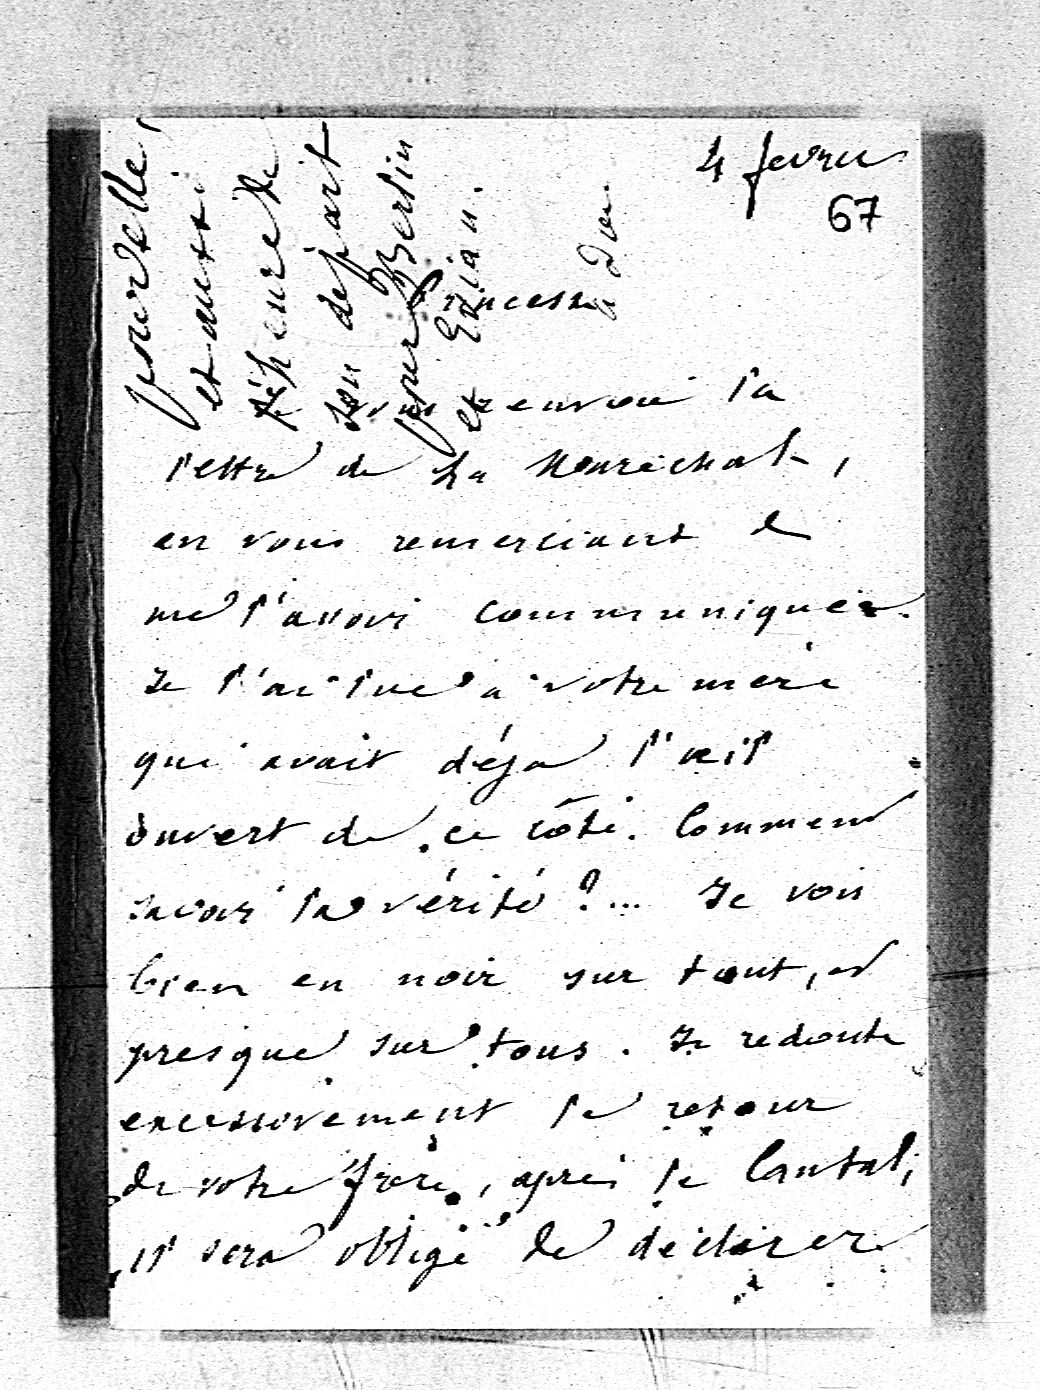 4 fevrier
67
Princesse
Je vous renvoie la
lettre de La Maréchale,
en vous remerciant de
me l'avoir communiquée.
Je l'ai lue à votre mère
qui avait déja l'œil
ouvert de ce côté. Comment
savoir la vérité ?... Je vois
bien en noir sur tout, et
presque sur tous. Je redoute
excessivement le retour
de votre frère, après le Cantal,
il sera obligé de déclarer
nouvelle,
et aussi
l'heure de
son depart
pour Berlin
et Evian.